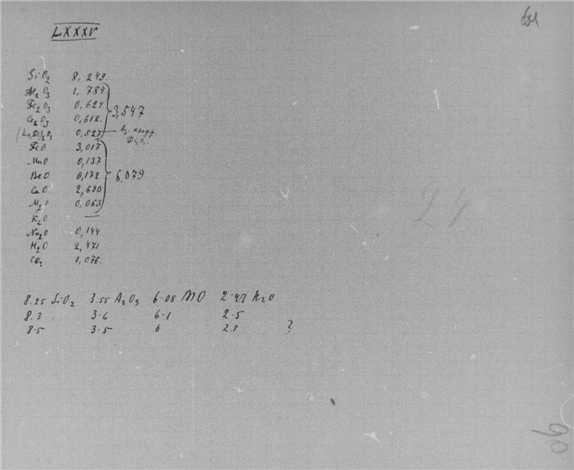 LXXXV
SiO2 8,249
Al2O3 1,784
Fe2O3 0,624 3,547
Ce2O3 0,612
(La,Di)2O3 0,527
FeO 3,017
MnO 0,137
BeO 0,172 6,079
CaO 2,690
MgO 0,063
K2O —
Na2O 0,144
H2O 2,471
CO2 0,076
8.25 SiO2 3.55 A2O3 6.08 MO 2.47 H2O
8.3 3.6 6.1 2.5
8.5 3.5 6 2.5 ?